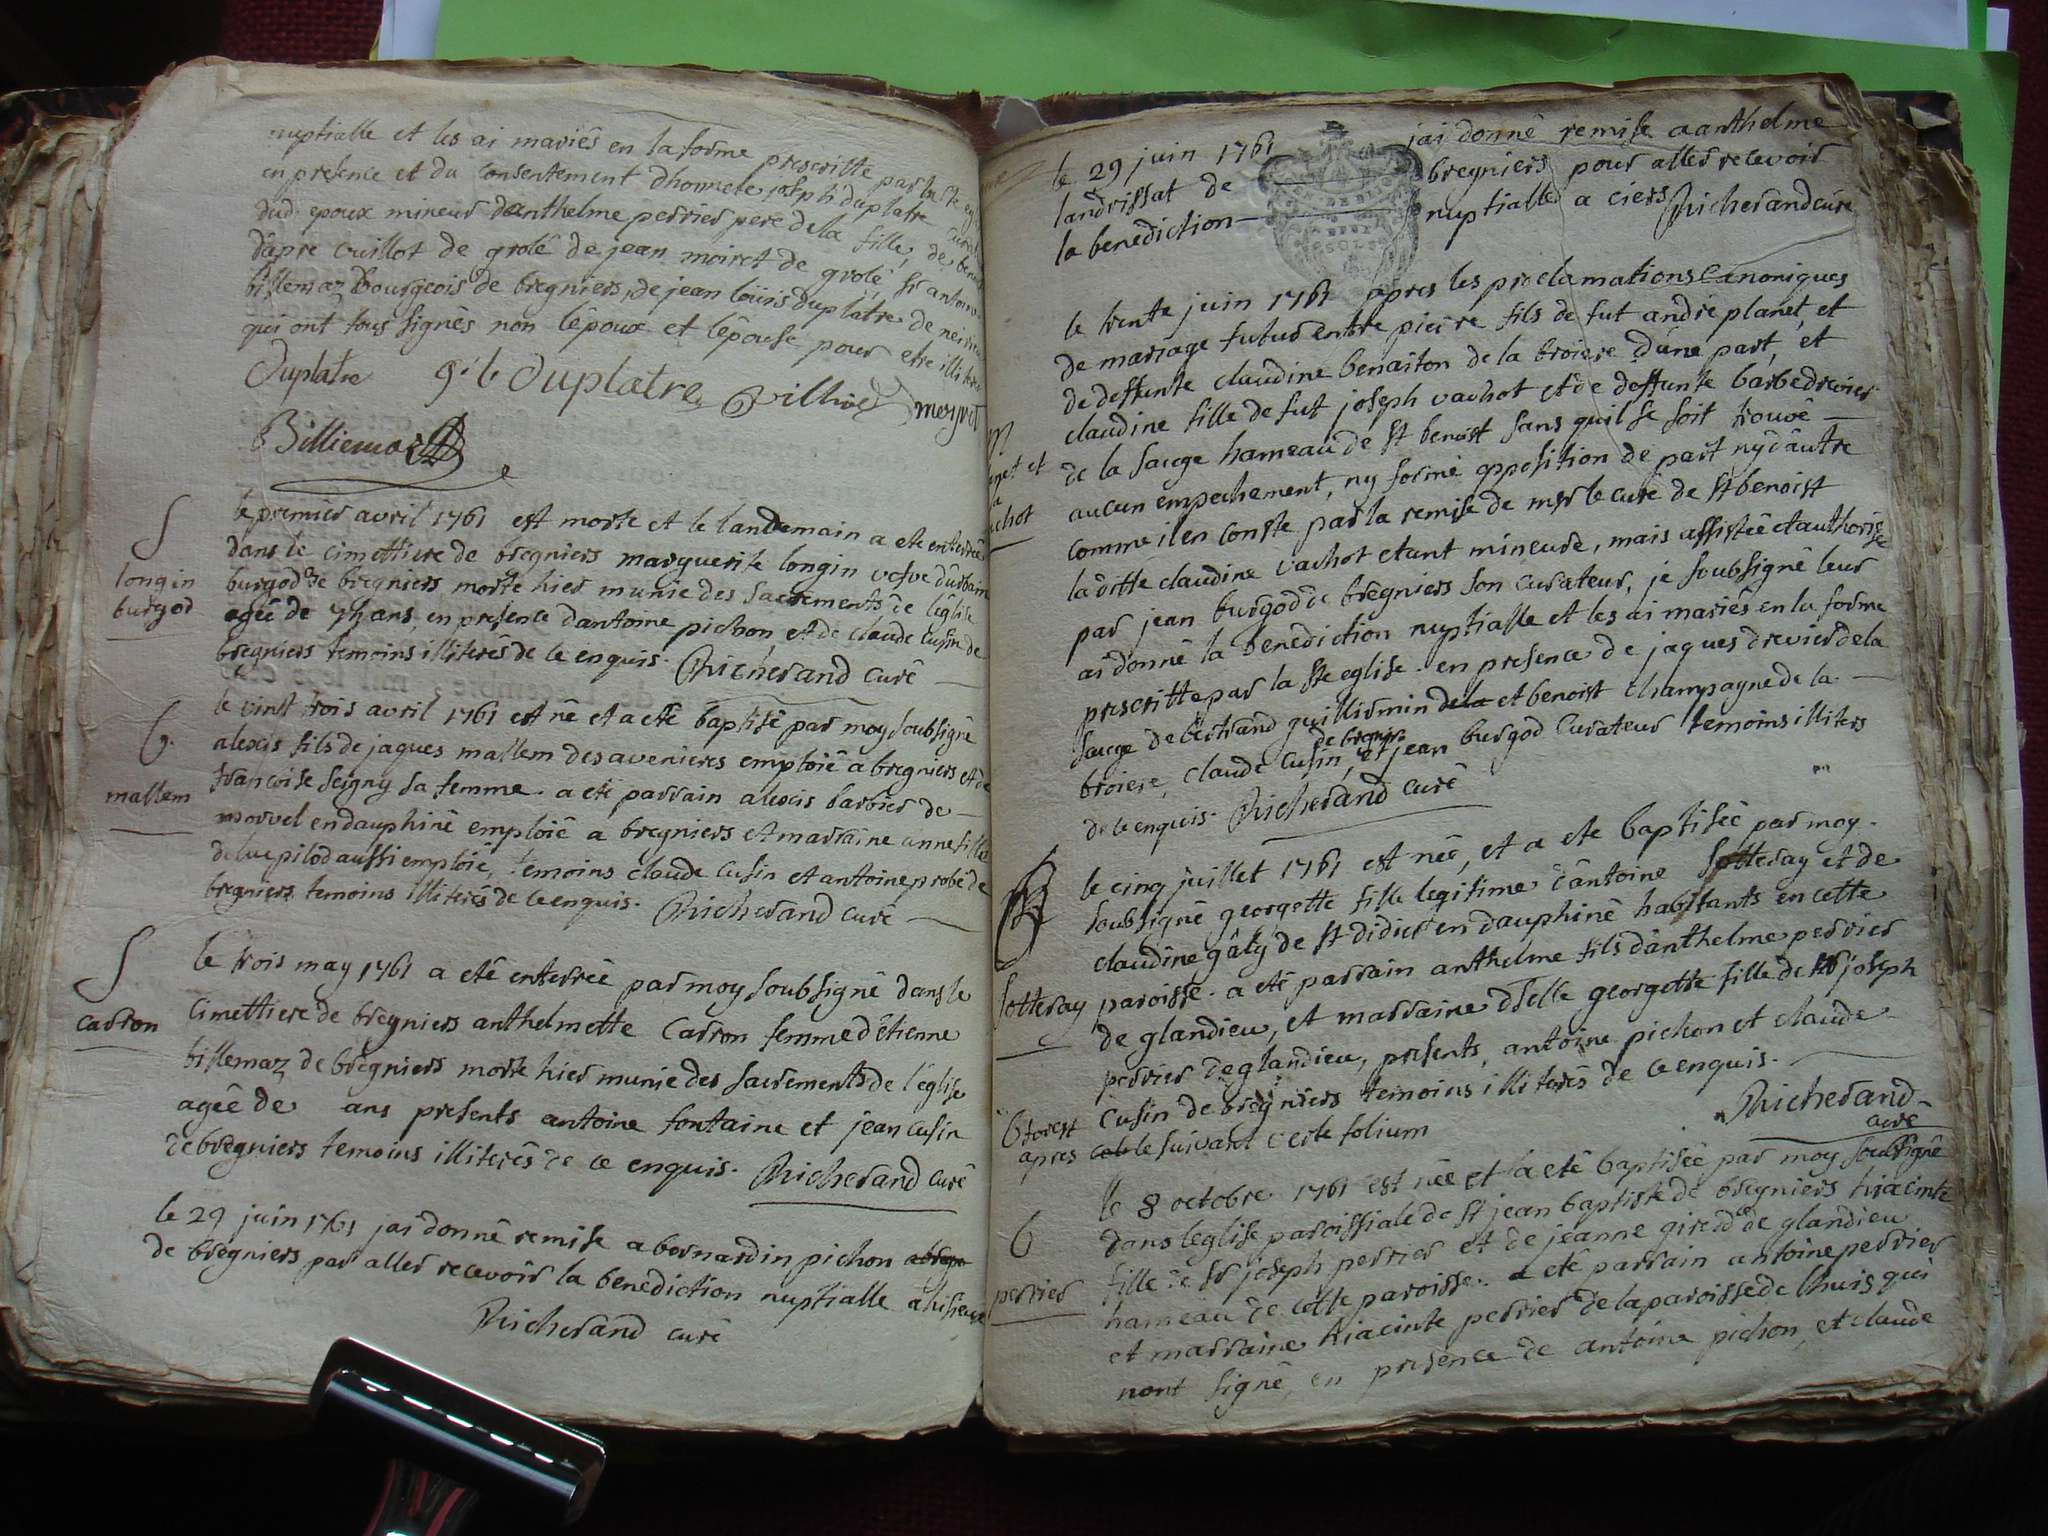 nuptialle et les ai mariés en la forme prescritte par la ste
en presence et du consentement dhonnete joseph duplatre
dud. epoux mineur danthelme perrier pere de la fille, de
dapre vuillot de grolé de jean moiret de grolé, sr antoine
billemaz Bourgeois de bregniers, de jean loüis duplatre de
qui ont tous signés non lépoux et lépouse pour etre
Duplatre Duplatre
Billiemaz
S
le premier avril 1761 est morte et le landemain a ete enterrée
dans le cimettiere de bregniers marguerite longin vesve durbain
longin
burgod de bregniers morte hier munie des sacrements de léglise
burgod
agée de ans, en presence dantoine pichon, et de claude cusin de
bregniers temoins illiterés de ce enquis. Richerand curé
b.
le vint trois avril 1761 est né et a eté baptisé par moy soubsigné
alexis fils de jaques mallem des avenieres emploié a bregniers et de
mallem
francoise seigny sa femme. a eté parrain alexis barbier de
morvel en dauphiné emploié a bregniers et marraine anne fille
de luc pilod aussi emploié, temoins claude cusin et antoine probé de
bregniers temoins illiterés de ce enquis. Richerand curé
S
le trois may 1761 a eté enterrée par moy soubsigné dans le
carron
cimettiere de bregniers anthelmette Carron femme détienne
billemaz de bregniers morte hier munie des sacrements de l'église
agée de ans presents antoine fontaine et jean cusin
de bregniers temoins illiterés de ce enquis. Richerand curé
le 29 juin 1761 jai donné remise a bernardin pichon
de bregniers par aller recevoir la benediction nuptialle
Richerand curé
le 29 juin 1761 jai donné remise a anthelme
landrissat de bregniers pour aller recevoir
la benediction nuptialle a ciers Richerand curé
le trente juin 1761 apres les proclamations canoniques
de mariage futur entre pierre fils de fut andré planet, et
de deffunte claudine benaiton de la broiere d'une part, et
claudine fille de fut joseph vachot et de deffunte barbe drevier
m
de la sauge hameau de st benoist sans quil se soit trouvé
et
aucun empechement, ny formé opposition de part ny d'autre
comme il en conste par la remise de msr le curé de st benoist
la ditte claudine vachot etant mineure, mais assistée et authorisée
par jean burgod de bregniers son curateur, je soubsigné leur
ai donné la benediction nuptialle et les ai mariés en la forme
prescritte par la ste eglise. en presence de jaques drevier de la
sauge de bertrand guillermin dela et benoist champagne de la
broiere, claude cusin de bregniers, et jean burgod curateur temoins illiters
de ce enquis. Richerand curé
B
le cinq juillet 1761 est née, et a eté baptisée par moy
soubsigné georgette fille legitime d'antoine sotteray et de
claudine gâly de st didier en dauphiné habitants en cette
sotteray
paroisse. a eté parrain anthelme fils d'anthelme perrier
de glandieu, et marraine dselle georgette fille de sr joseph
perrier de glandieu, presents, antoine pichon et claude
cusin de bregniers temoins illiterés de ce enquis.
Richerand
curé
b forest
apres le suivant cette folium
b
le 8 octobre 1761 est née et a eté baptisée par moy soubsigné
dans leglise paroissiale de st jean baptiste de bregniers hiacinte
perrier
fille de sr joseph perrier et de jeanne girod de glandieu
hameau de cette paroisse. a eté parrain antoine perrier
et marraine hiacinte perrier de la paroisse de lhuis qui
nont signé, en presence de antoine pichon, et claude